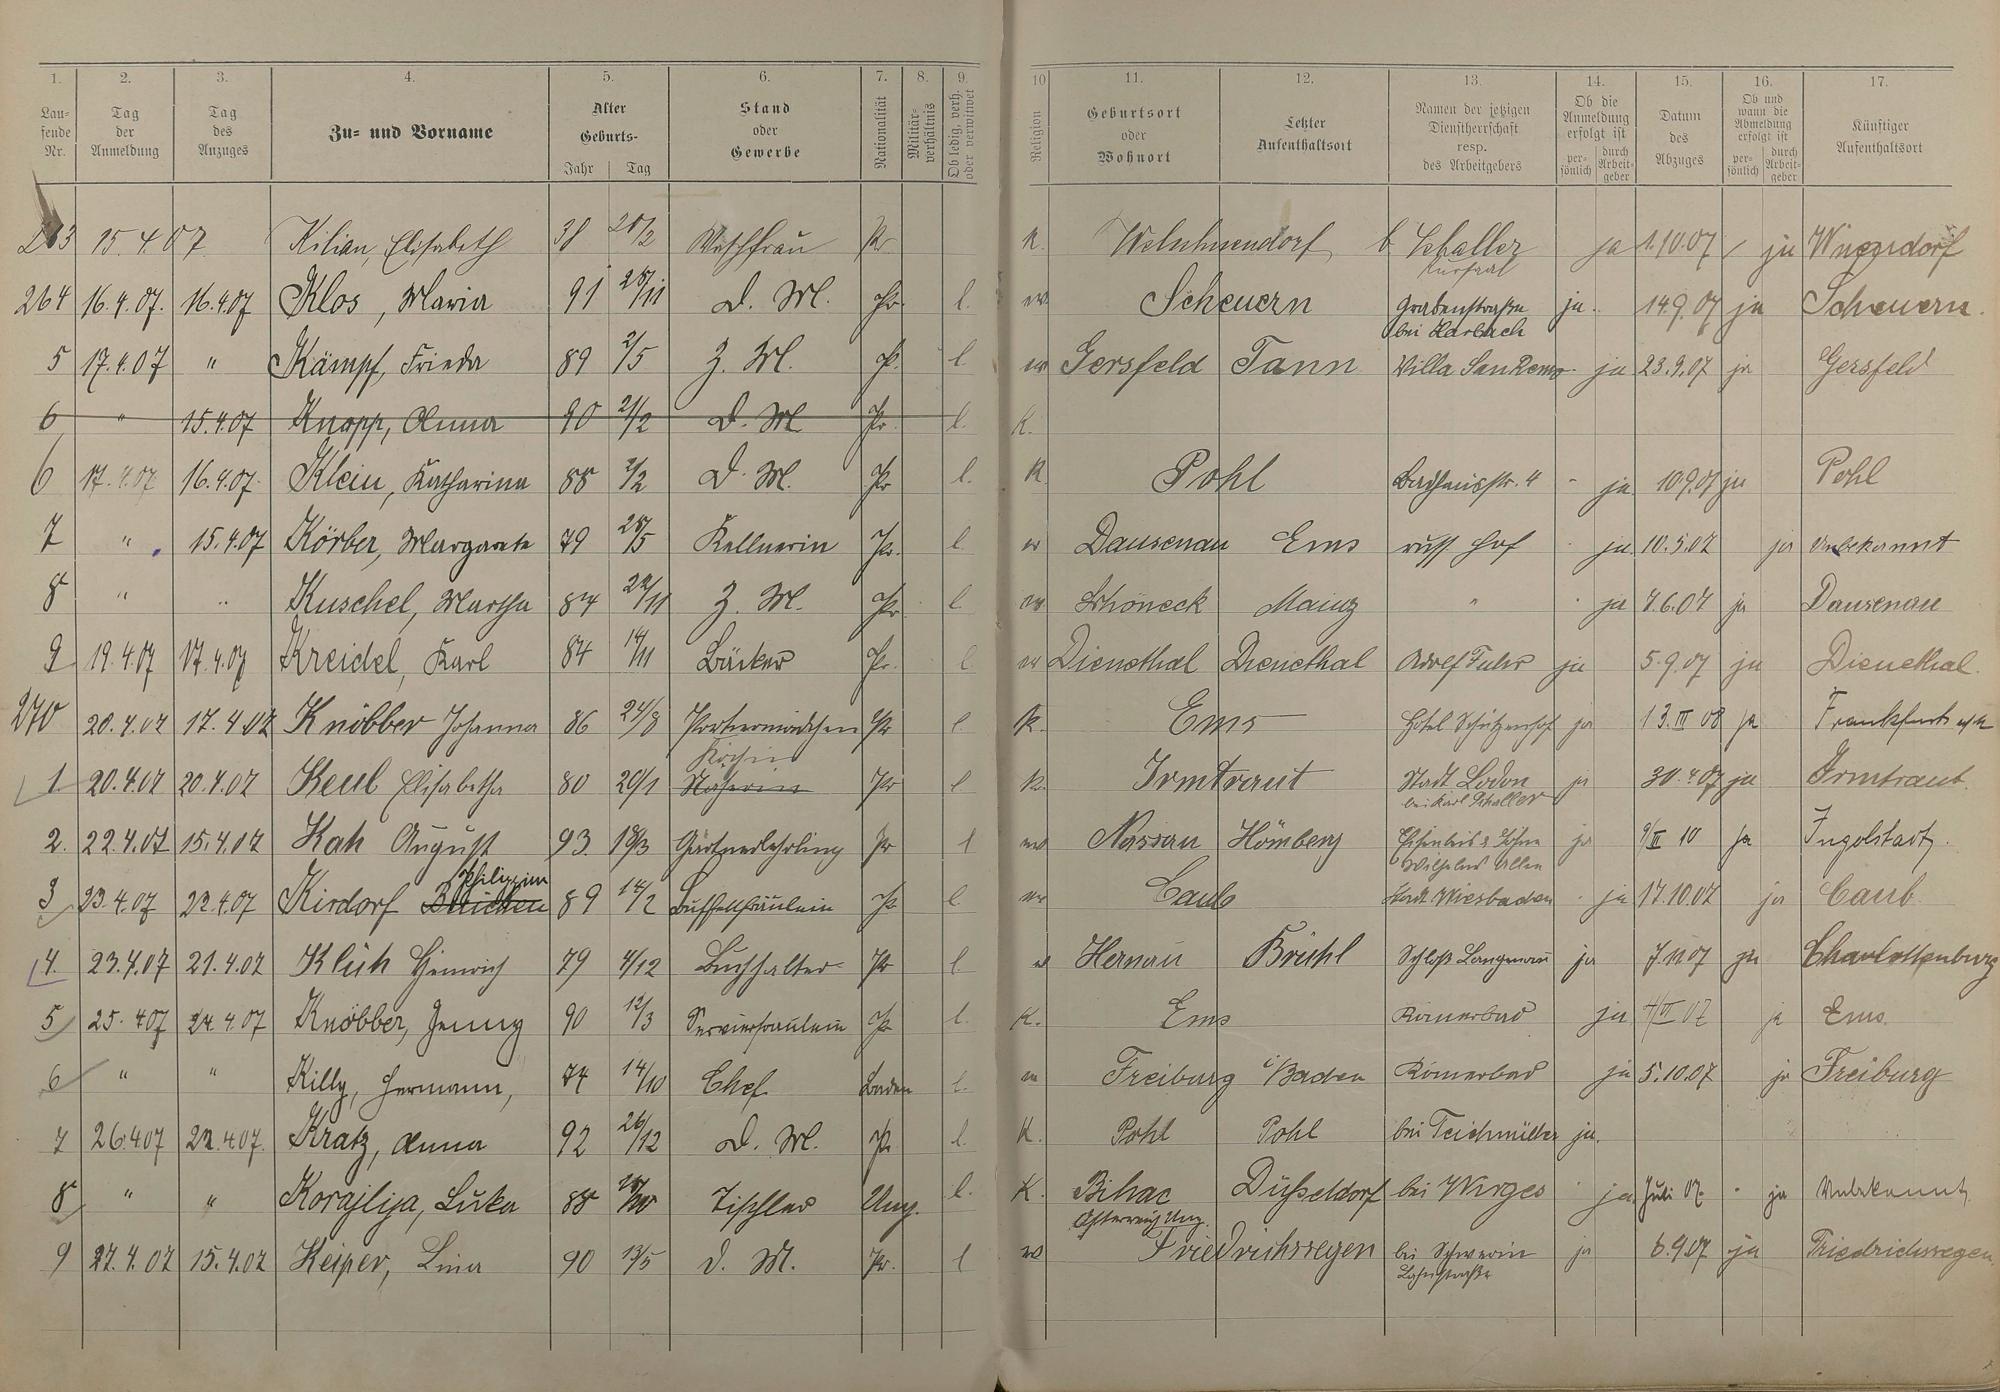 1. 2. 3. 4. 5. 6. 7. 8. 9. 10 11. 12. 13. 14. 15. 16. 17.
Lau-
fende
Nr.
Tag
der
Anmeldung
Tag
des
Anzuges
Zu- und Vorname
Alter
Geburts-
Jahr Tag
Stand
oder
Gewerbe
Nationalität
Militär-
verhältnis
Ob ledig, verh.
oder verwitwet
Religion
Geburtsort
oder
Wohnort
Letzter
Aufenthaltsort
Namen der jetzigen
Dienstherrschaft
resp.
des Arbeitgebers
Ob die
Anmeldung
erfolgt ist
per-
sönlich
durch
Arbeit-
geber
Datum
des
Abzuges
Ob und
wann die
Abmeldung
erfolgt ist
per-
sönlich
durch
Arbeit-
geber
Künftiger
Aufenthaltsort
263 15.4.07 Kilian, Elisabeth 38 20/2 Waschfrau Pr K. b. Schaller ja 1.10.07 ja
Kursaal
264 16.4.07. 16.4.07 Klos, Maria 91 28/11 D. M. Pr. l. ev Scheuern Grabenstraße ja. 14.9.07 ja Scheuern.
bei Harbach
5 17.4.07 " Kämpf, Frieda 89 2/5 Z. M. Pr. l ev Gersfeld Tann Villa SanRemo ja 23.9.07 ja Gersfeld
6 " 15.4.07 Knopp, Anna 90 21/2 D. M. Pr. l. K.
6 17.4.07 16.4.07 Klein, Katharina 88 2/2 D. M. Pr l. K Pohl Badhausstr. 4 - ja 10.9.07 ja Pohl
7 " 15.4.07 Körber, Margarete 79 28/5 Kellnerin Pr. l ev Dausenau Ems russ Hof ja 10.5.07 ja Unbekannt
8 " " Kuschel, Martha 84 22/11 Z. M. Pr. l. ev Schöneck Mainz " ja 7.6.07 ja Dausenau
9 19.4.07 17.4.07 Kreidel, Karl 84 14/11 Bäcker Pr. l ev Dienethal Dienethal Adolf Fuhr ja 5.9.07 ja Dienethal.
270 20.4.07 17.4.07 Knöbber Johanna 86 24/8 Pr l. K. Ems Hotel Schützenhof ja 13.III 08 ja Frankfurt a/M
Köchin
1. 20.4.07 20.4.07 Keul Elisabetha 80 20/1 Näherin Pr l K. Irmtraut Stadt Lodon ja 30.4.07 ja Irmtraut.
bei Karl Schaller
2. 22.4.07 15.4.07 Kah August 93. 18/3 Gärtnerlehrling Pr l ev Nassau Hömberg ja 9/III 10 ja Ingolstadt.
Wilhelms Allee
Philippine
3 23.4.07 22.4.07 Kirdorf 89 14/2 Buffetfräulein Pr l. ev Caub Stadt Wiesbaden ja 17.10.07 ja Caub.
4. 23.4.07 21.4.07 Klüh Heinrich 79 4/12 Buchhalter Pr l ev Hanau Brühl Schloß Langenau ja 7.11.07 ja Charlottenburg
5 25.4.07 24.4.07 Knöbber, Jenny 90 12/3 Servierfräulein Pr. l. K. Ems Römerbad ja 4/VI 07 ja Ems.
6 " " Killy, Hermann, 74 14/10 Chef Baden l. Freiburg i/Baden Römerbad ja 5.10.07 ja Freiburg
7 26.4.07 22.4.07. Kratz, Anna 92 26/12 D. M. Pr. l. K. Pohl Pohl bei Teichmüller ja.
8 " " Korajlija, Luka 88 Tischler Ung. l. K. Bihac Düsseldorf bei Wirges ja Juli 07. " ja Unbekannt
Österreich Ung.
9 27.4.07 15.4.07 Keiper, Lina 90 13/5 D. M. Pr. l ev Friedrichssegen bei Schwerin ja 6.9.07 ja Friedrichssegen
Lahnstraße